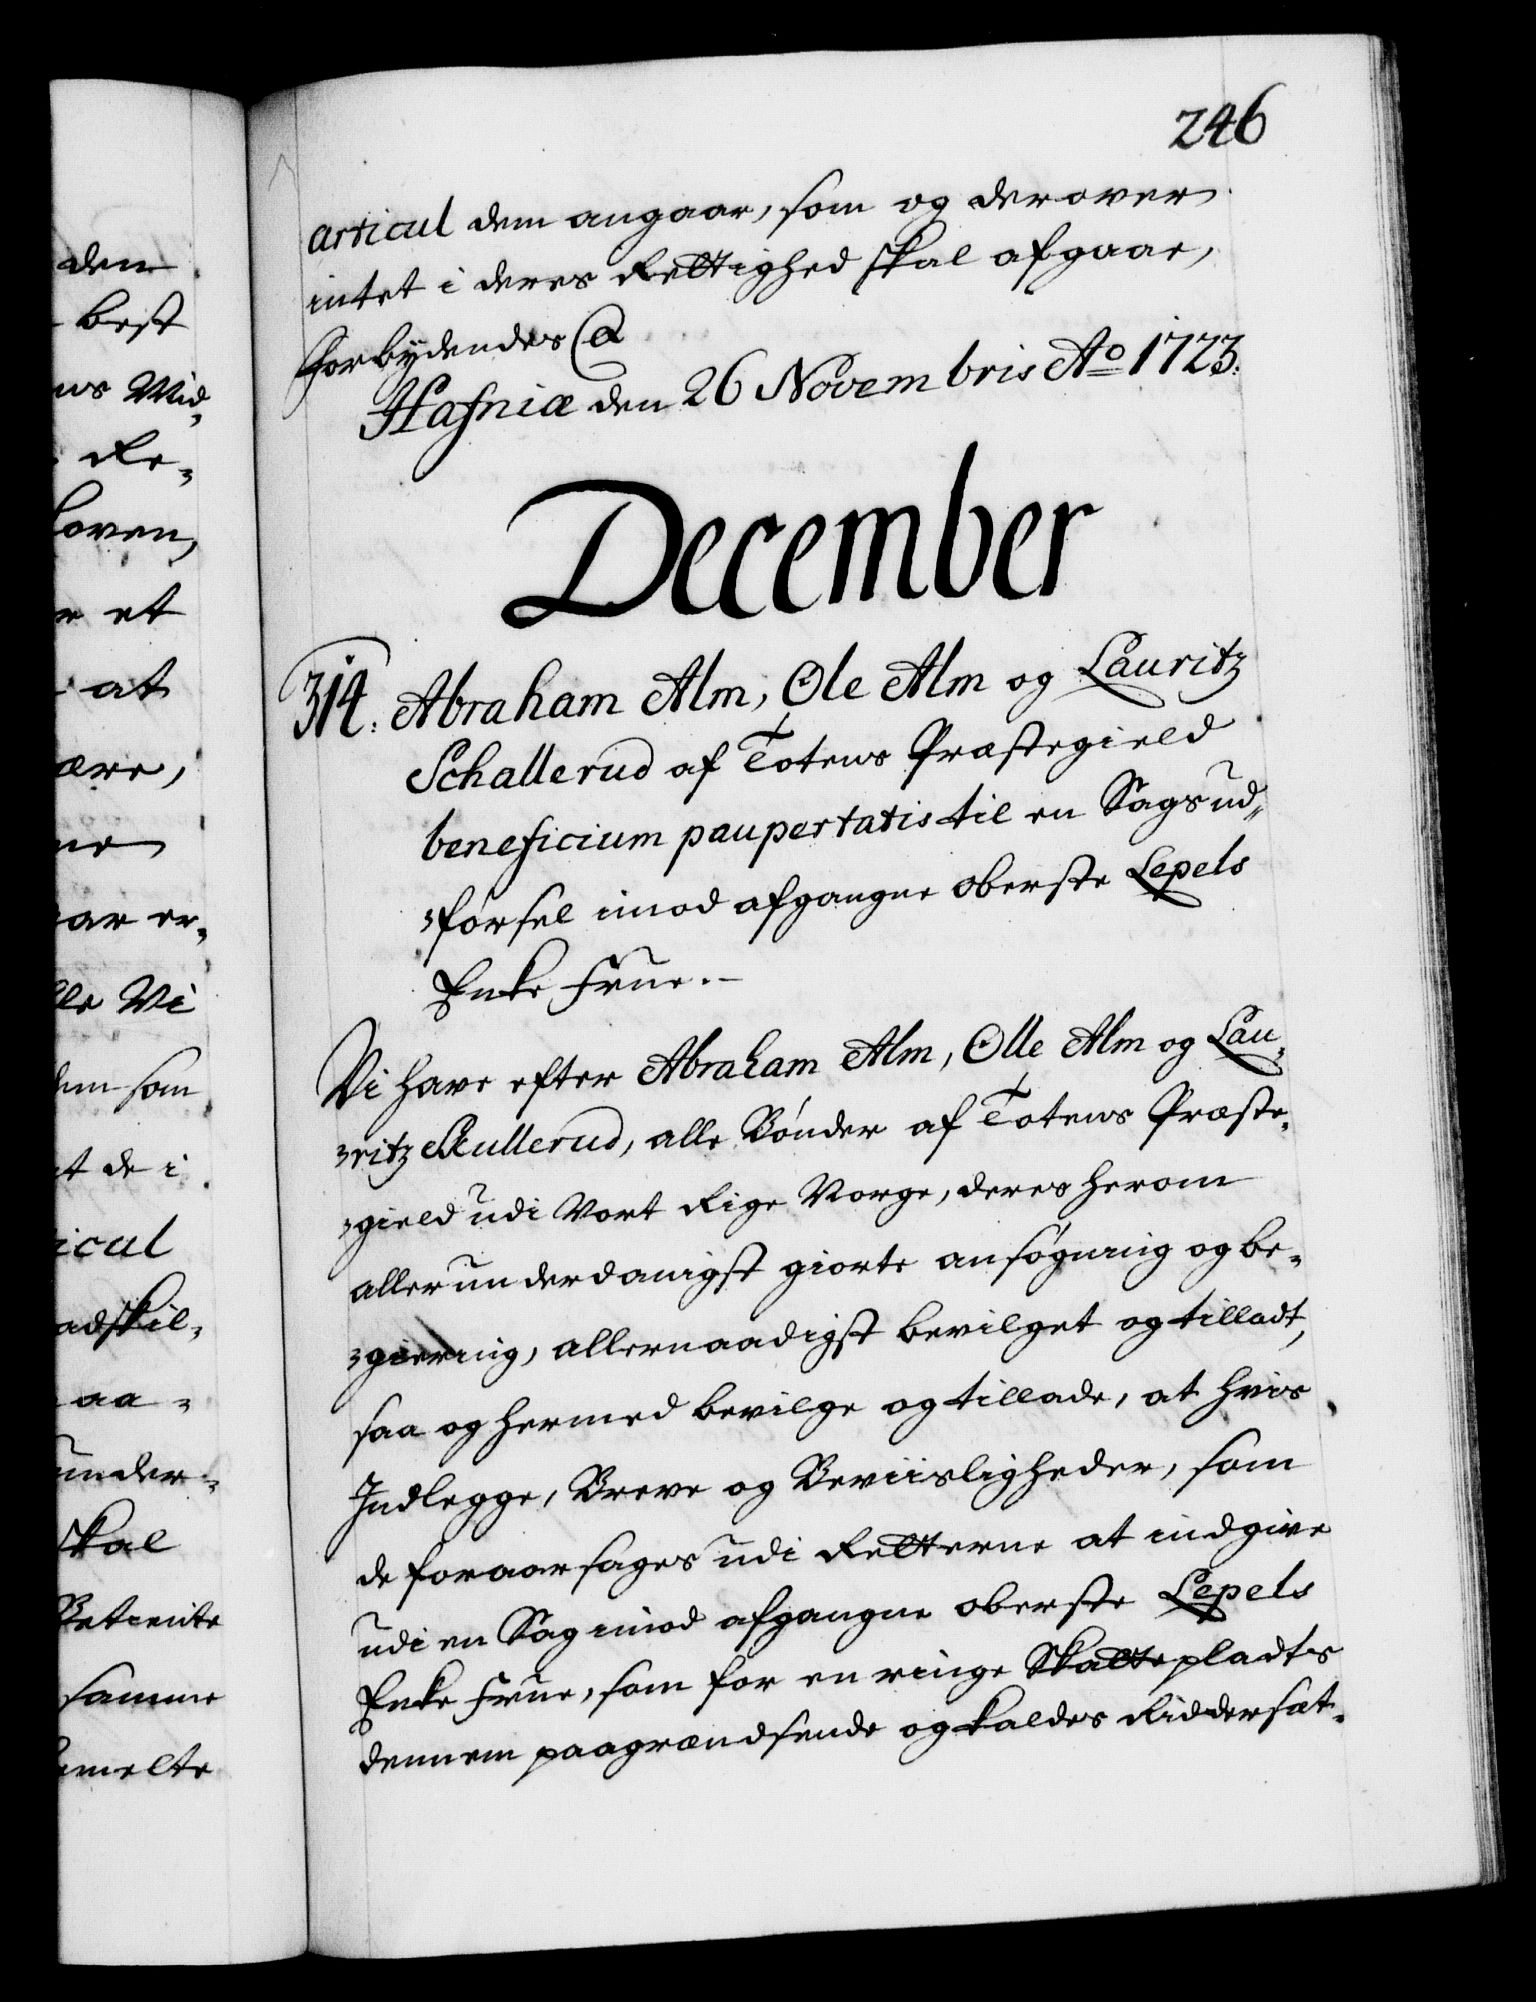 246
articul dem angaar, som og derover
intet i deres Rettighed skal afgaae,
forbydendes &
Hafniæ den 26 Novembris Ao 1723.
December
314. Abraham Alm, Ole Alm og Lauritz
Schallerud af Totens Præstegield
beneficium paupertatis til en Sags ud-
førsel imod afgangne Oberste Lepels
Enke Frue.
Vi have efter Abraham Alm, Olle Alm og Lau-
ritz Skullerud, alle Bønder af Totens Præste-
gield udi Vort Rige Norge, deres herom
allerunderdanigst giorte ansøgning og be-
giering, allernaadigst bevilget og tilladt,
saa og hermed bevilge og tillade, at hvis
Indlegge, Breve og Beviisligheder, som
de foraarsages udi Retterne at indgive
udi en Sag imod afgangne Oberste Lepels
Enke Frue, som for en ringe Skatte pladts
dennem paagrændsende og kaldes Riddersæt-
den
best
ns Mid-
Re-
loven,
r et
at
ære,
ne
ar er-
lle Vi
dem som
at de i
icul
adskil-
aa-
under-
skal
Betiente
samme
melte